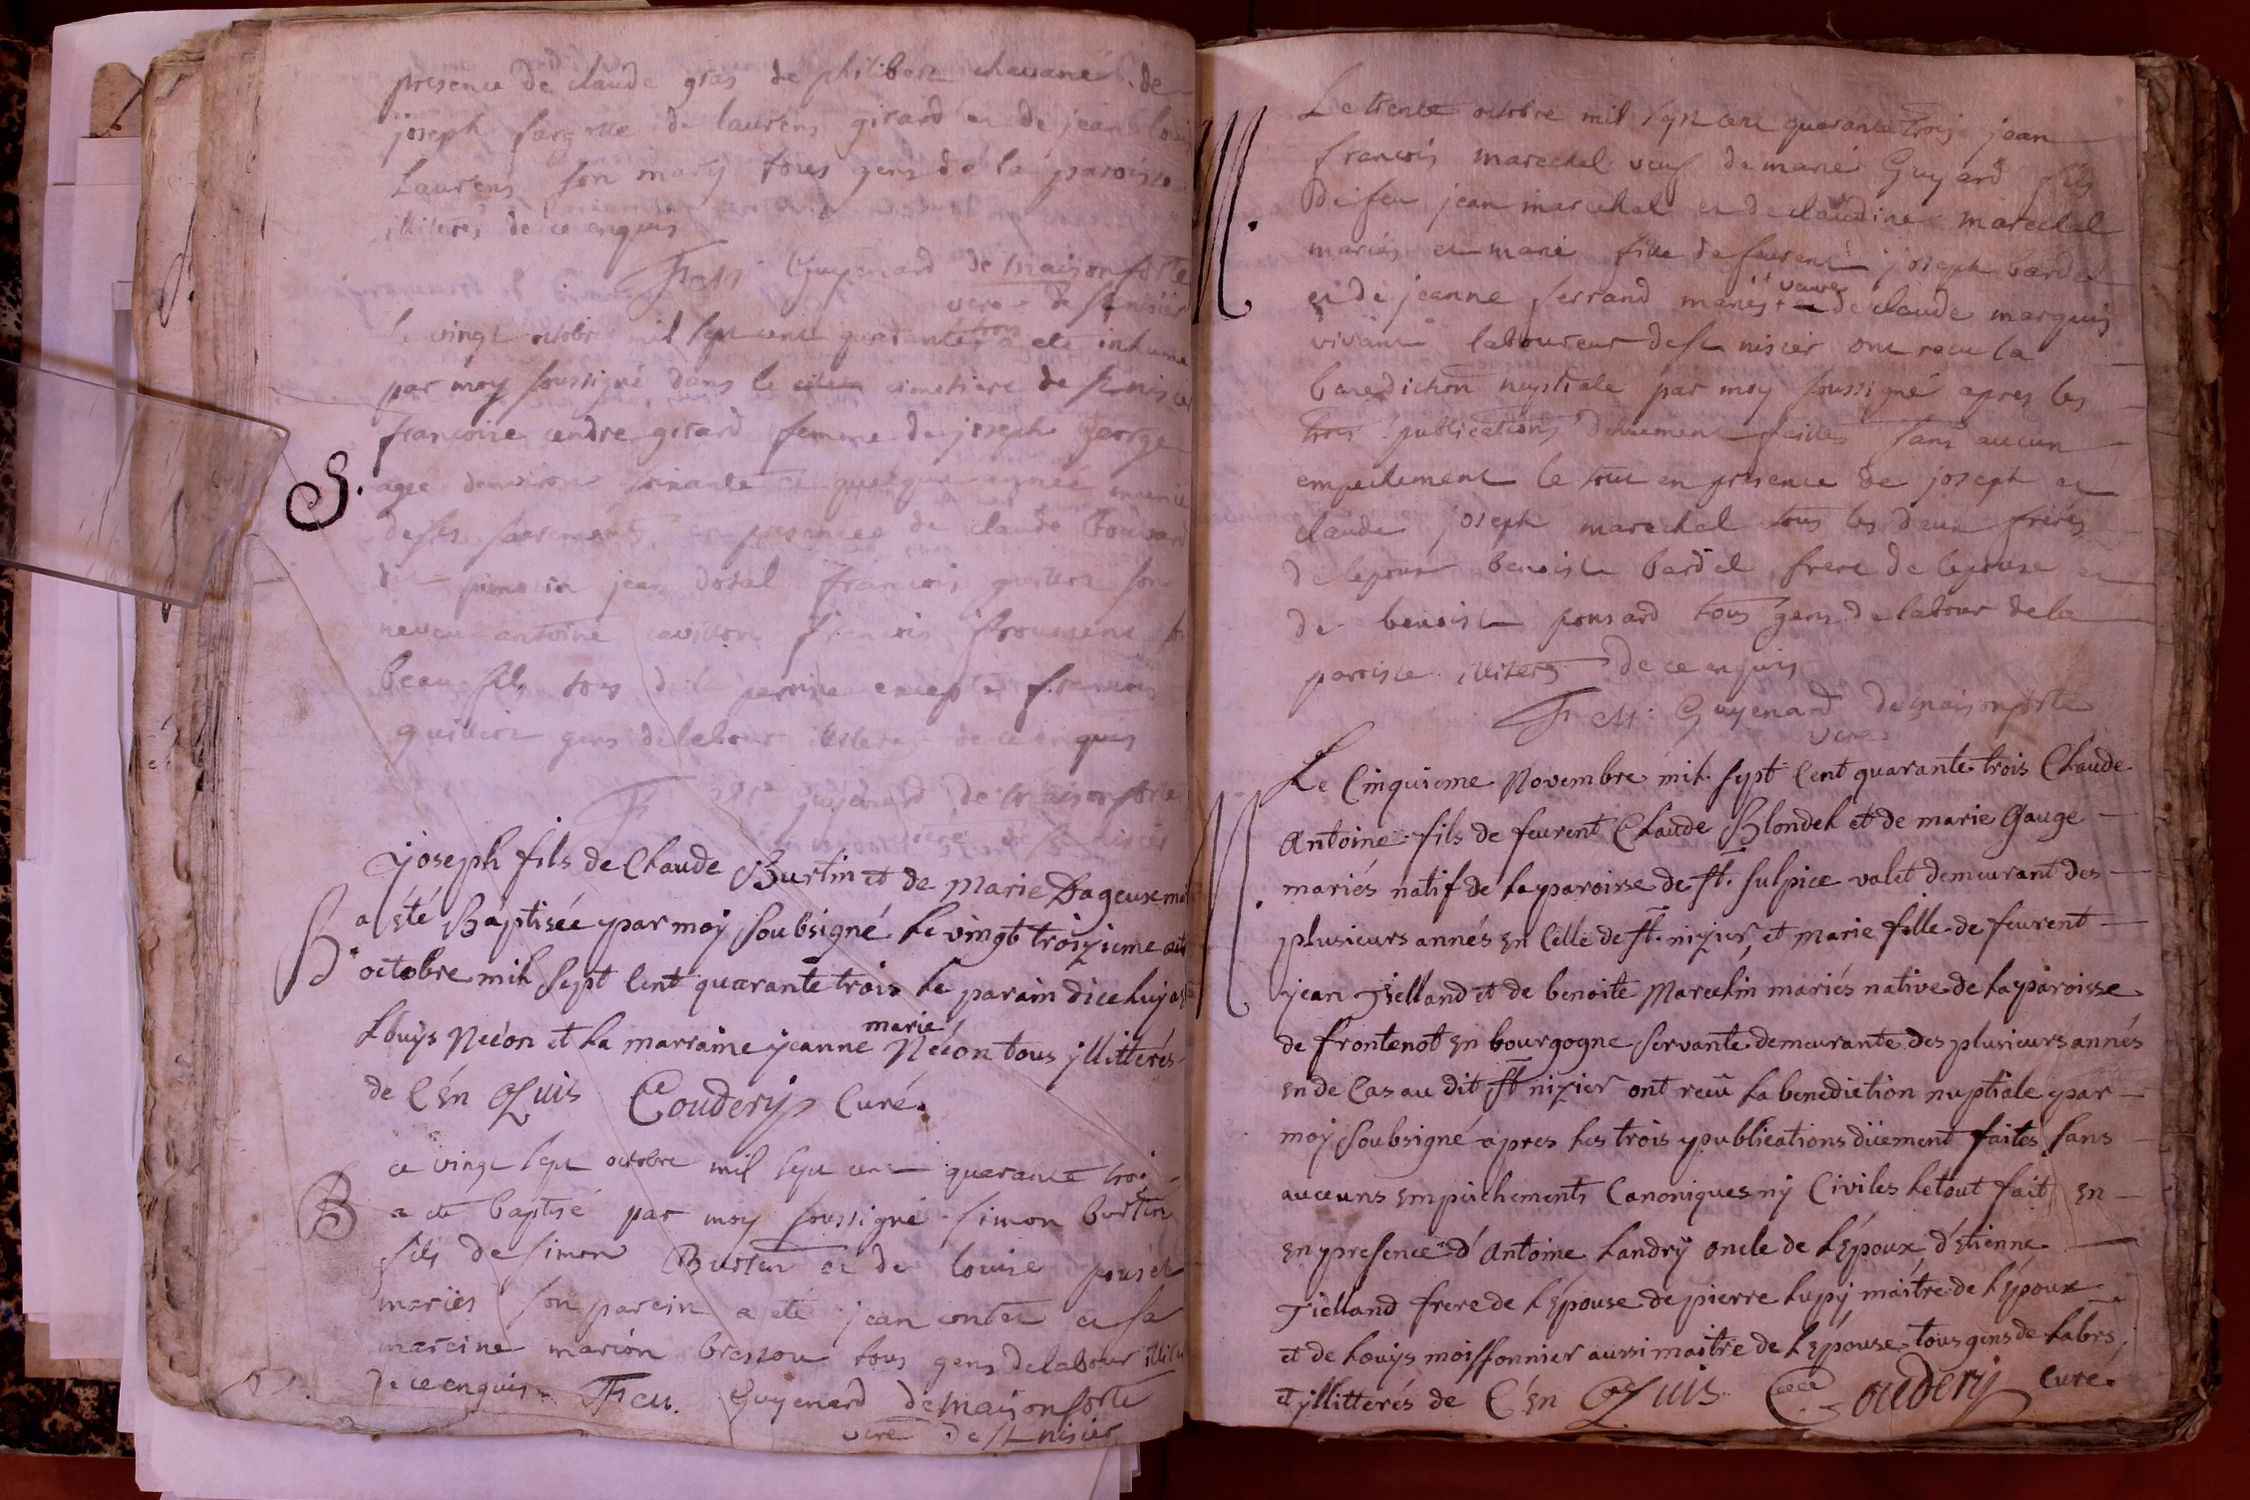 presence de claude gras de philibert chavane de
joseph de laurens girard et de jean
Laurens son mary tous gens de la paroisse
illiterés de ce enquis
Guyenard de maisonforte
vere de st nisier
le vingt octobre mil sept cent quarante trois a eté inhumé
par moy soussigné dans le cimetiere de st nisier
francoise cendre girard femme de joseph george
S. agee denviron soixante et quelque année munie
de ses sacrements en presence de claude
jean dosal francois son
neveu antoine francois froument
beau fils tous de la paroisse excepté francois
gens de labour illiterés de ce enquis
Guyenard de maisonforte
joseph fils de Claude Burtin et de Marie Dageux
B. a été Baptisée par moy Soubsigné le vingt troizieme
octobre mil Sept Cent quarante trois le parain diceluy
Louys Néeon et la marraine jeanne marie Néeon tous yllitterés
de C'én Quis Couderij Curé.
ce vingt sept octobre mil sept cent quarante trois
B a eté baptisé par moy soussigné simon burtin
fils de simon Burtin et de louise
mariés son parein a eté jean contet et sa
mareine marion bressou tous gens de labour
de ce enquis Guyenard de maisonforte
vere de st nisier
Le trente octobre mil sept cent quarante trois jean
M. francois marechal veuf de marie Guyard fils
De feu jean marechal et de claudine marechal
mariés et marie fille de feurent joseph bardel
et de jeanne ferrand mariés veuve de claude marquis
vivant laboureur de st nisier ont recu la
benediction nuptiale par moy soussigné apres les
trois publications deuement faittes sans aucun
empechement le tout en presence de joseph et
claude joseph marechal tous les deux freres
de lepoux benoist bardel frere de lepouse et
de benoist ponsard tous gens de labour de la
paroisse illiterés de ce enquis
Guyenard de maisonforte
vere
Le Cinquieme Novembre mil Sept Cent quarante trois Claude
M. Antoine fils de feurent Claude Blondel et de marie Gauge
mariés natif de la paroisse de St. Sulpice valet demeurant des
plusieurs annés en Celle de St. nizier, et marie fille de feurent
jean Tielland et de benoite Marechin mariés native de la paroisse
de frontenot en bourgogne servante demeurante des plusieurs annés
en de Cas au dit St nizier ont recû la benediction nuptiale par
moy Soubsigné apres les trois publications düement faites sans
auceuns empêchements Canoniques nÿ Civiles le tout fait en
en presence d'Antoine Landrÿ oncle de L'Époux, d'Etienne
Tielland frere de L'Epouse de pierre Lupÿ maitre de L'Epoux
et de Louys moissonnier aussi maitre de L'Epouse tous gens de Labrs.
et yllitterés de C'én Quis. Couderij Curé.